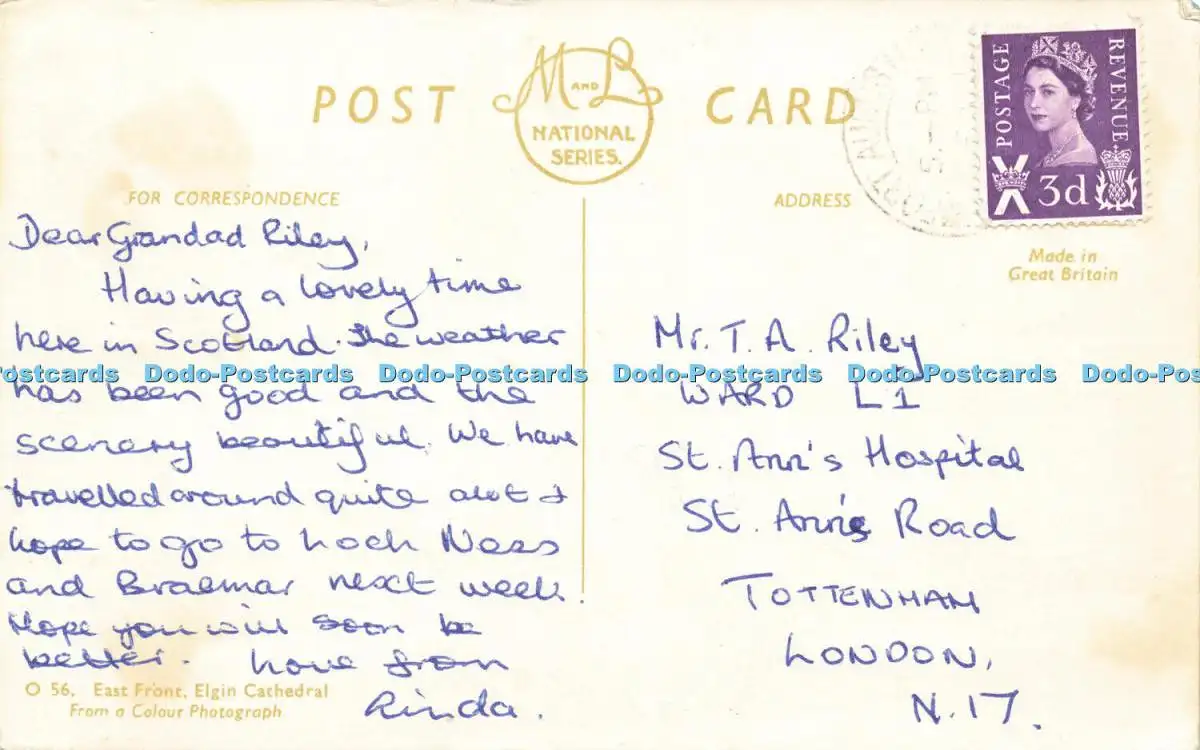 POST M AND L CARD
NATIONAL
SERIES.
POSTAGE
REVENUE
3d
FOR CORRESPONDENCE
ADDRESS
Made in
Great Britain
Dear Grandad Riley,
Having a lovely time
here in Scotland. The weather
has been good and the
scenery beautiful. We have
travelled around quite alot &
hope to go to Loch Ness
and Braemar next week.
Hope you will soon be
better. Love from
Linda.
O 56, East Front, Elgin Cathedral
From a Colour Photograph
Mr. T. A. Riley
WARD L1
St. Ann's Hospital
St. Ann's Road
TOTTENHAM
LONDON,
N.17.
Postcards Dodo-Postcards Dodo-Postcards Dodo-Postcards Dodo-Postcards Dodo-Pos